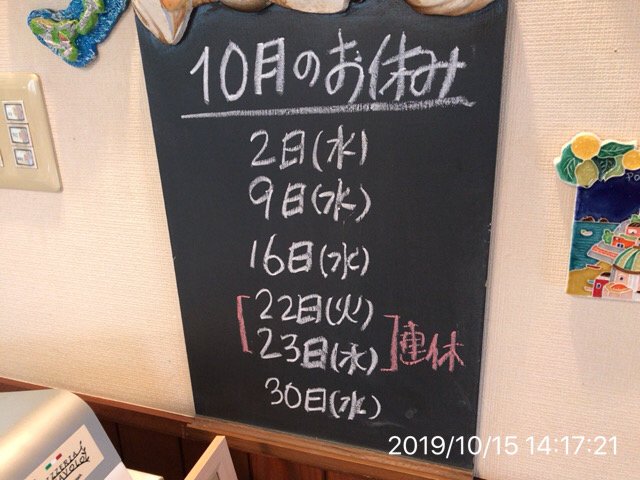 10月のお休み
2日(水)
9日(水)
16日(水)
22日(火)
23日(水)
連休
30日(水)
2019/10/15 14:17:21